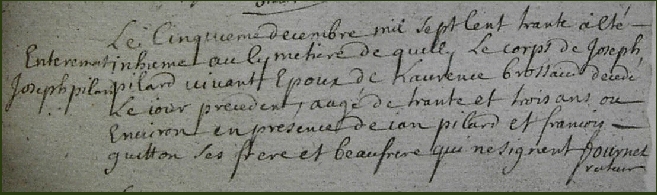 Le Cinquieme decembre mil sept Cent trante a été
Enterement
Joseph pilard
inhumé au Cymetiere de quilly Le corps de Joseph
pilard vivant Epoux de Laurence brossaud decedé
Le iour precedent, aagé de trante et trois ans ou
Environ en presence de ian pilard et francois
guitton ses frere et beaufrere qui ne signent fournet